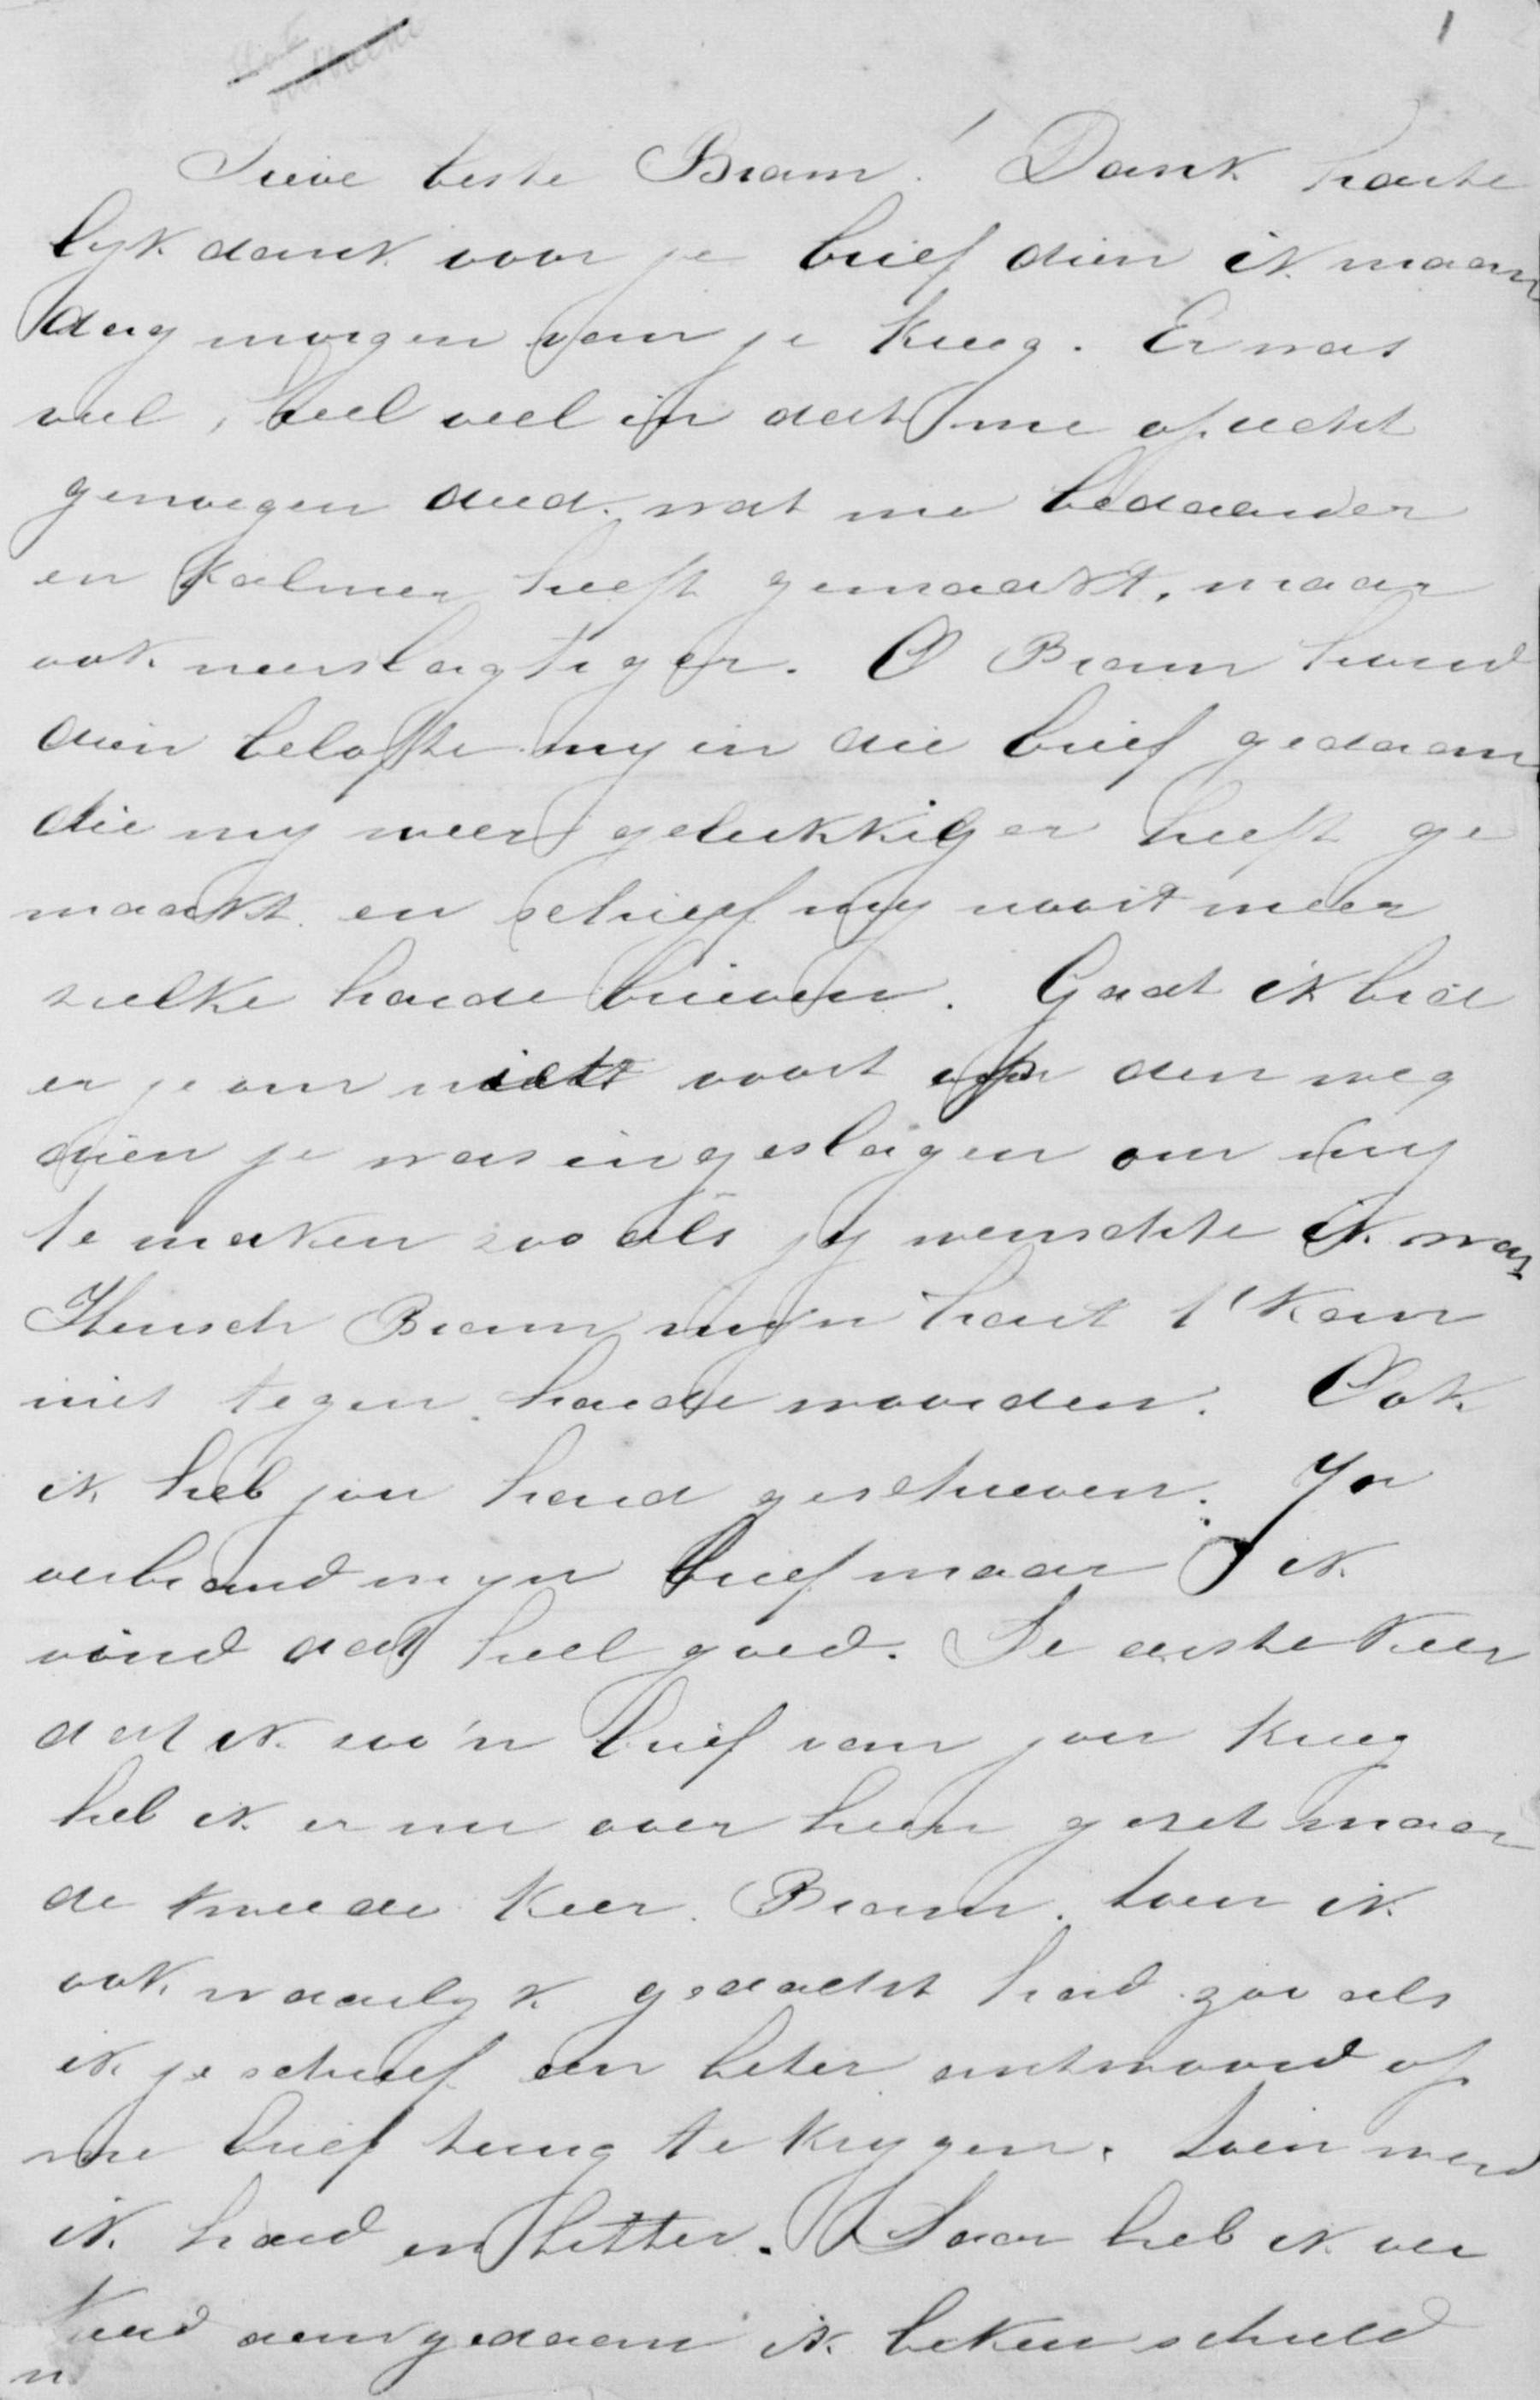 1
Lieve beste Bram! Dank harte
lyk dank voor je brief dien ik maan
dag morgen van je kreeg. Er was
veel, heel veel in dat me oprecht
genoegen deed. wat me bedaarder
en kalmer heeft gemaakt, maar
ook neerslagtiger. O Bram houd
dien belofte my in die brief gedaan
die my weer gelukkiger heeft ge
maakt en schryf my nooit meer
zulke harde brieven. Gaat ik bid
er je om niet voort op den weg
dien je was ingeslagen om my
te maken zoo als jy wenschte ik was
Heusch Bram myn hart t' kan
niet tegen harde woorden. Ook
ik heb jou hard geschreven. Ja
verbrand myn brief maar ik
vind dat heel goed. De eerste keer
dat ik zoo'n brief van jou kreeg
heb ik er me over heen gezet maar
de tweede keer Bram. toen ik
ook waarlyk gedacht had zoo als
ik je schreef een beter antwoord op
me brief terug te krygen. toen werd
ik hard en bitter. Daar heb ik ver
keerd aan gedaan ik beken schuld
n